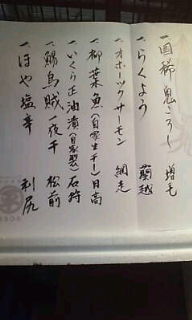 一 国稀 鬼ころし 増毛
一 らくよう 蘭越
一 オホーツクサーモン 網走
一 柳葉魚(自家生干し) 日高
一 いくら正油漬(自家製) 石狩
一 鯣烏賊一夜干 松前
一 ほや塩辛 利尻